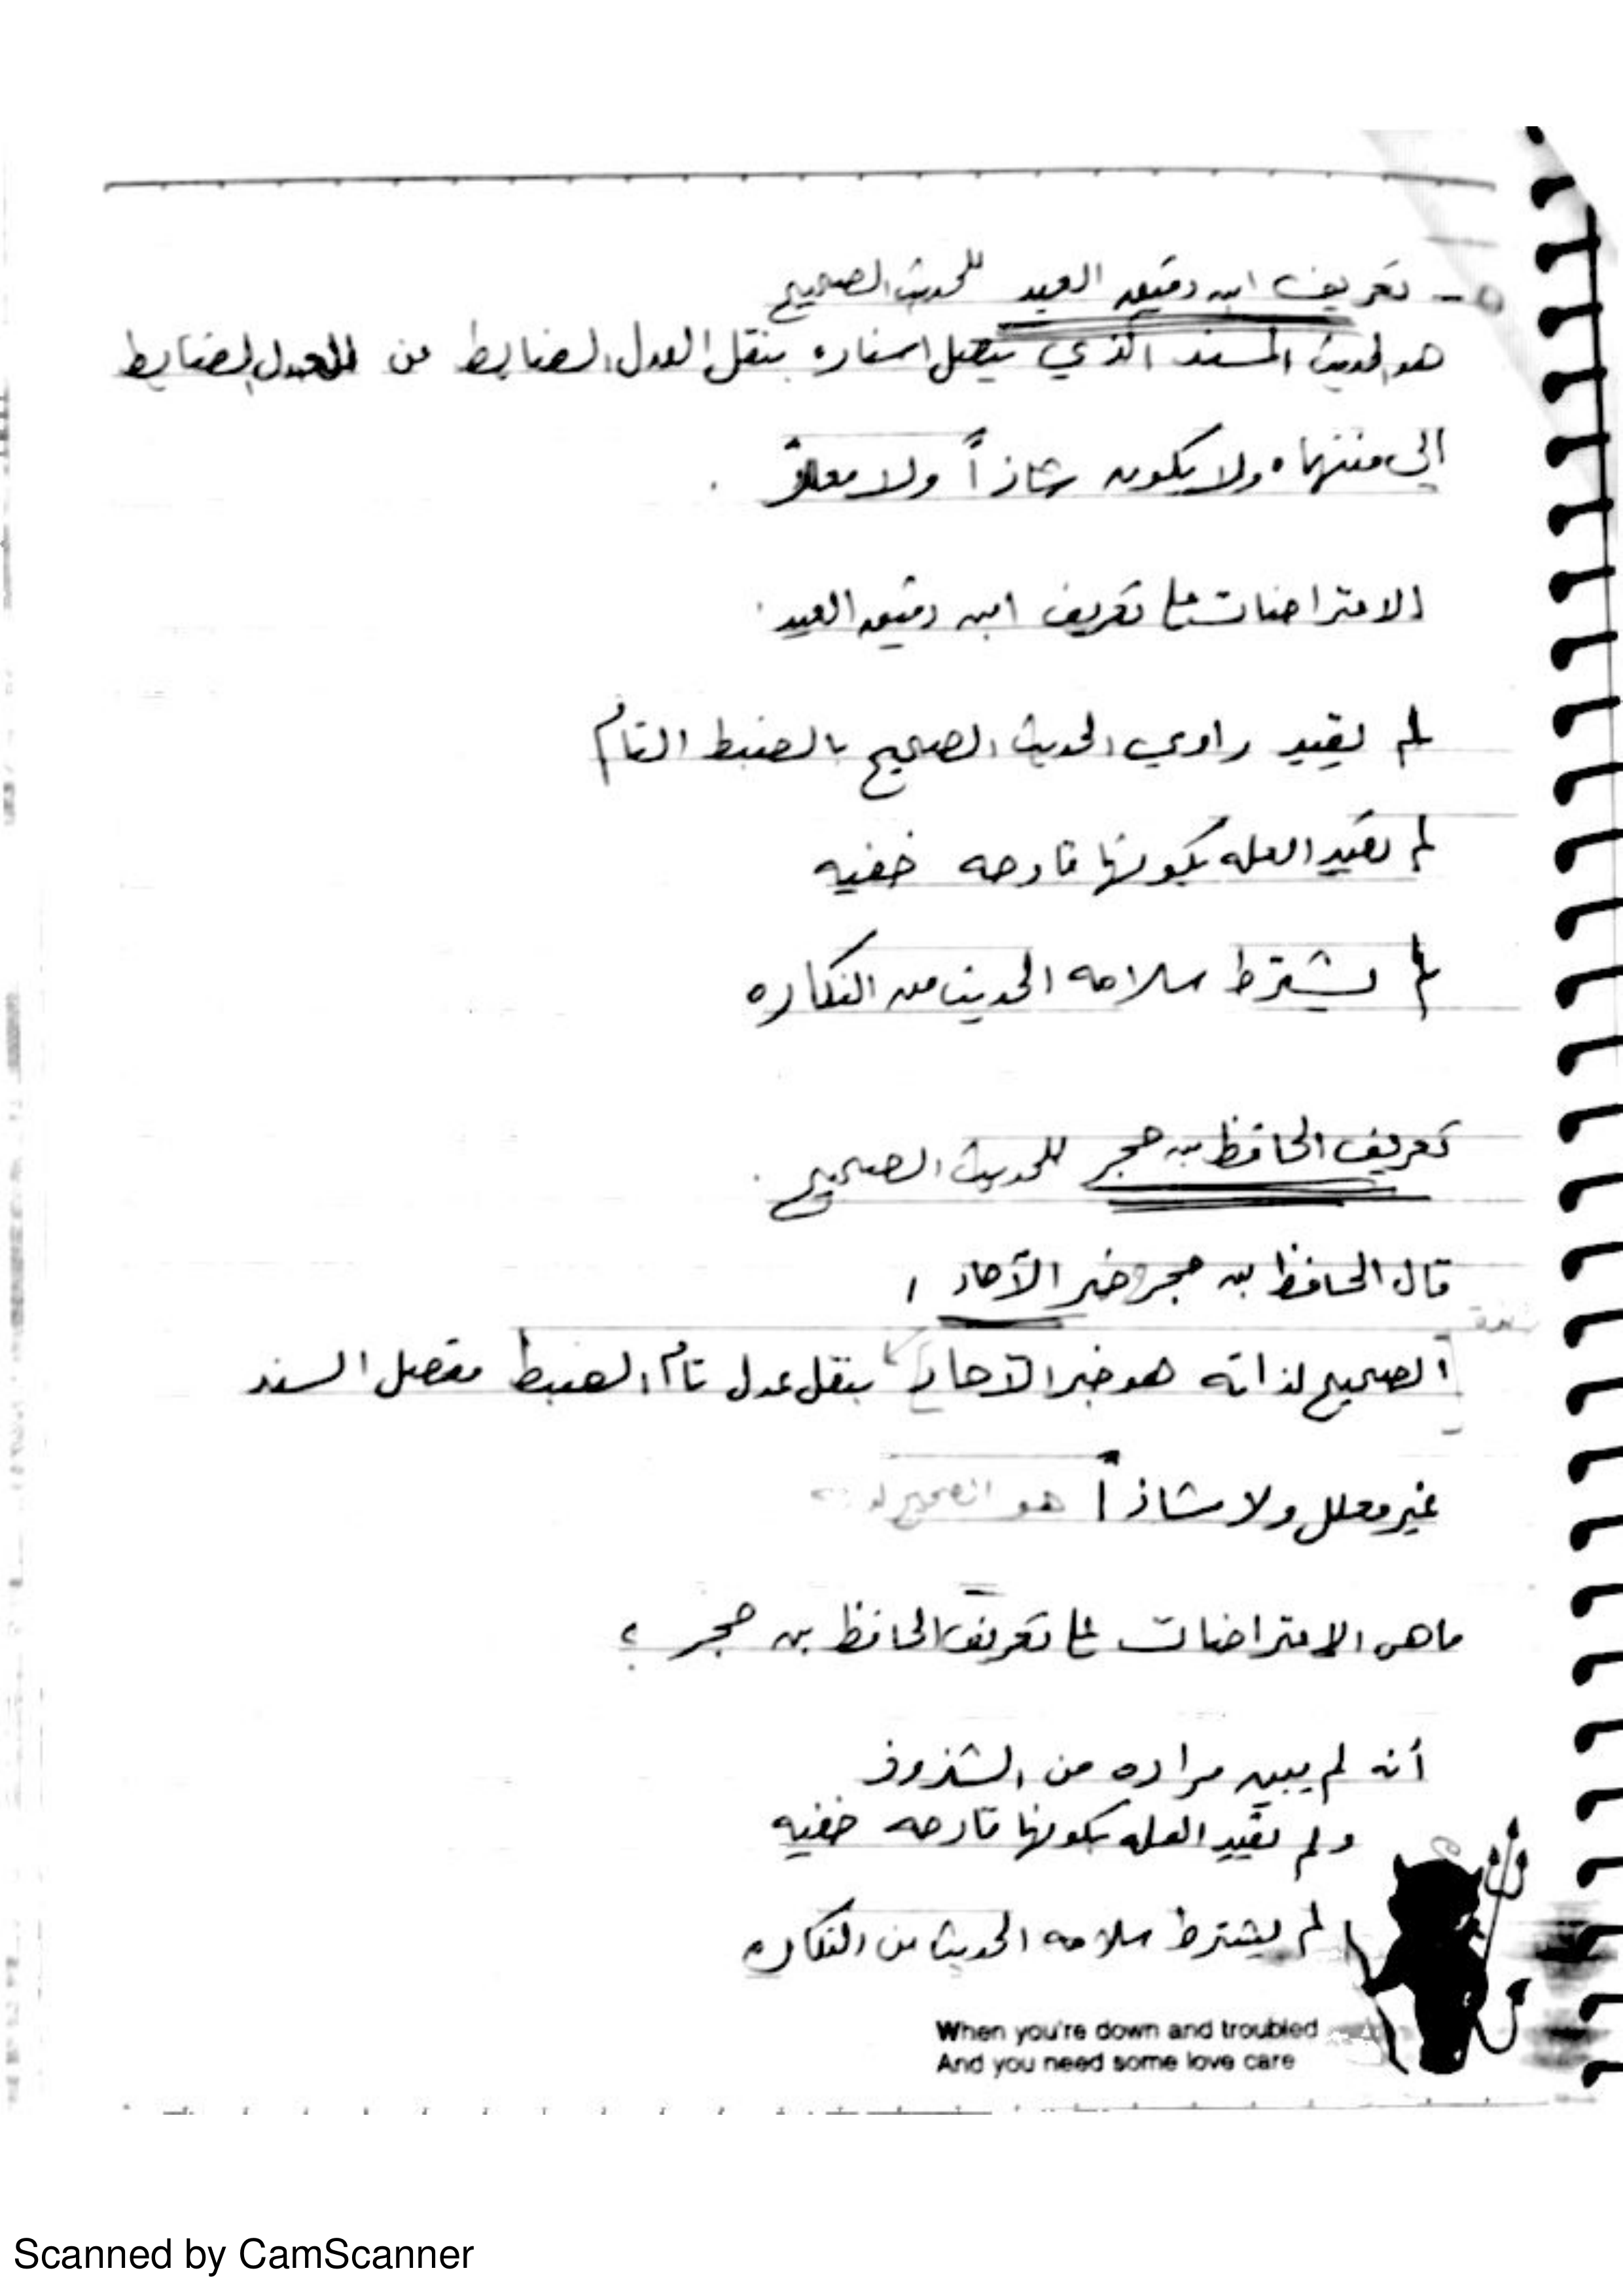 - تعريف ابن دقيق العيد للحديث الصحيح
هو الحديث المسند الذي يتصل اسناده بنقل العدل الضابط عن العدل الضابط
الى منتهاه ولا يكون شاذاً ولا معللاً .
الاعتراضات على تعريف ابن دقيق العيد :
لم يقيد راوي الحديث الصحيح بالضبط التام
لم يقيد العله بكونها قادحه خفيه
لم يشترط سلامه الحديث من النكاره
تعريف الحافظ بن حجر للحديث الصحيح .
قال الحافظ بن حجر خبر الآحاد ،
الصحيح لذاته هو خبر الآحاد بنقل عدل تام الضبط متصل السند
غير معلل ولا شاذاً هو الصحيح لذاته
ماهي الاعتراضات على تعريف الحافظ بن حجر ؟
أنه لم يبين مراده من الشذوذ
ولم يقيد العله بكونها قادحه خفيه
لم يشترط سلامه الحديث من النكاره
When you're down and troubled
And you need some love care
Scanned by CamScanner